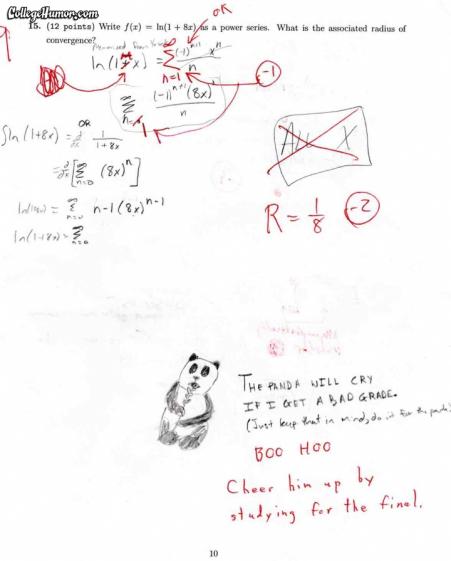 CollegeHumor.com
15. (12 points) Write f(x) = ln(1 + 8x) as a power series. What is the associated radius of
convergence?
OK
ln(1+x) = ∑ n=1 ∞ (-1)^{n+1} x^n / n
-1
∑ n=1 (-1)^{n+1} (8x)^n / n
OR
∫ln(1+8x) = ∂/∂x 1/(1+8x)
= ∂/∂x [∑ n=0 ∞ (8x)^n]
= ∑ ∞ n-1(8x)^{n-1}
ln(1+8x) = ∑ n=0 ∞
All X
R = 1/8 -2
THE PANDA WILL CRY
IF I GET A BAD GRADE.
(Just keep that in mind, do it for the panda)
BOO HOO
Cheer him up by
studying for the final.
10